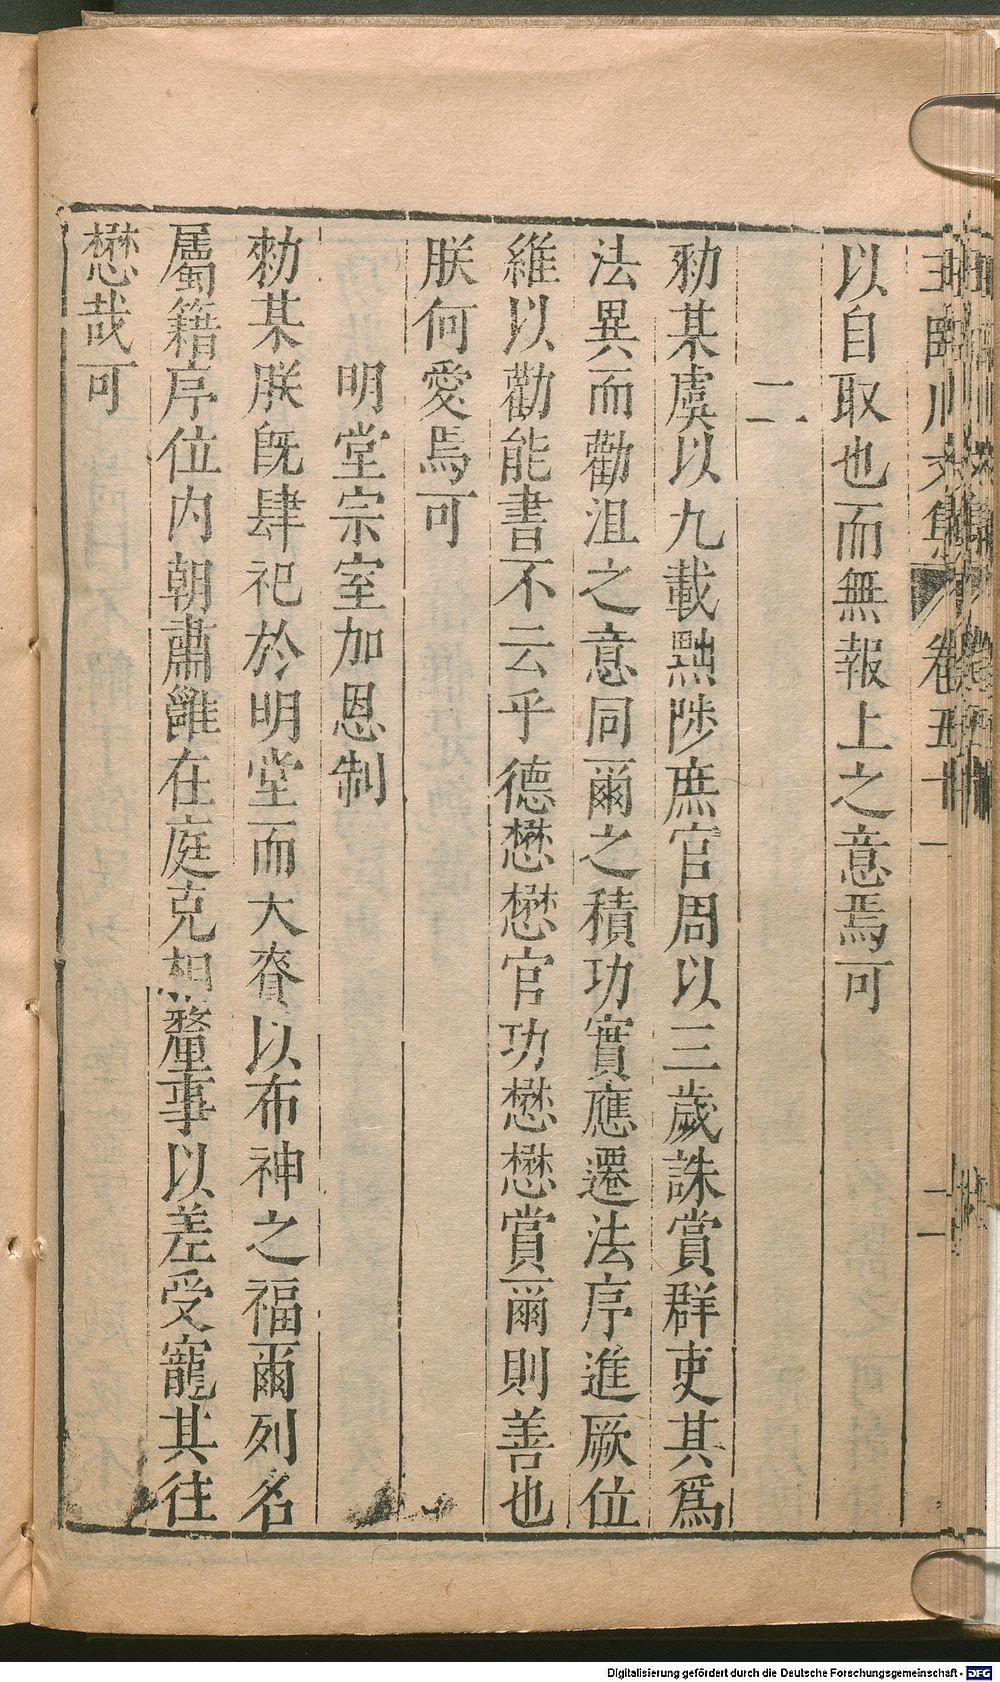 王臨川文集 卷五十一 二
以自取也而無報上之意焉可
二
勑某虞以九載黜陟庶官周以三歲誅賞群吏其爲
法異而勸沮之意同爾之積功實應遷法序進厥位
維以勸能書不云乎德懋懋官功懋懋賞爾則善也
朕何愛焉可
明堂宗室加恩制
勑某朕旣肆祀於明堂而大賚以布神之福爾列名
屬籍序位內朝肅雝在庭克相釐事以差受寵其往
懋哉可
Digitalisierung gefördert durch die Deutsche Forschungsgemeinschaft - DFG